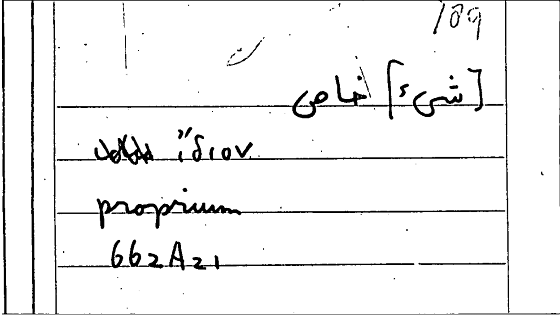 109
[شيء] خاص
ἴδιον
proprium
662A21